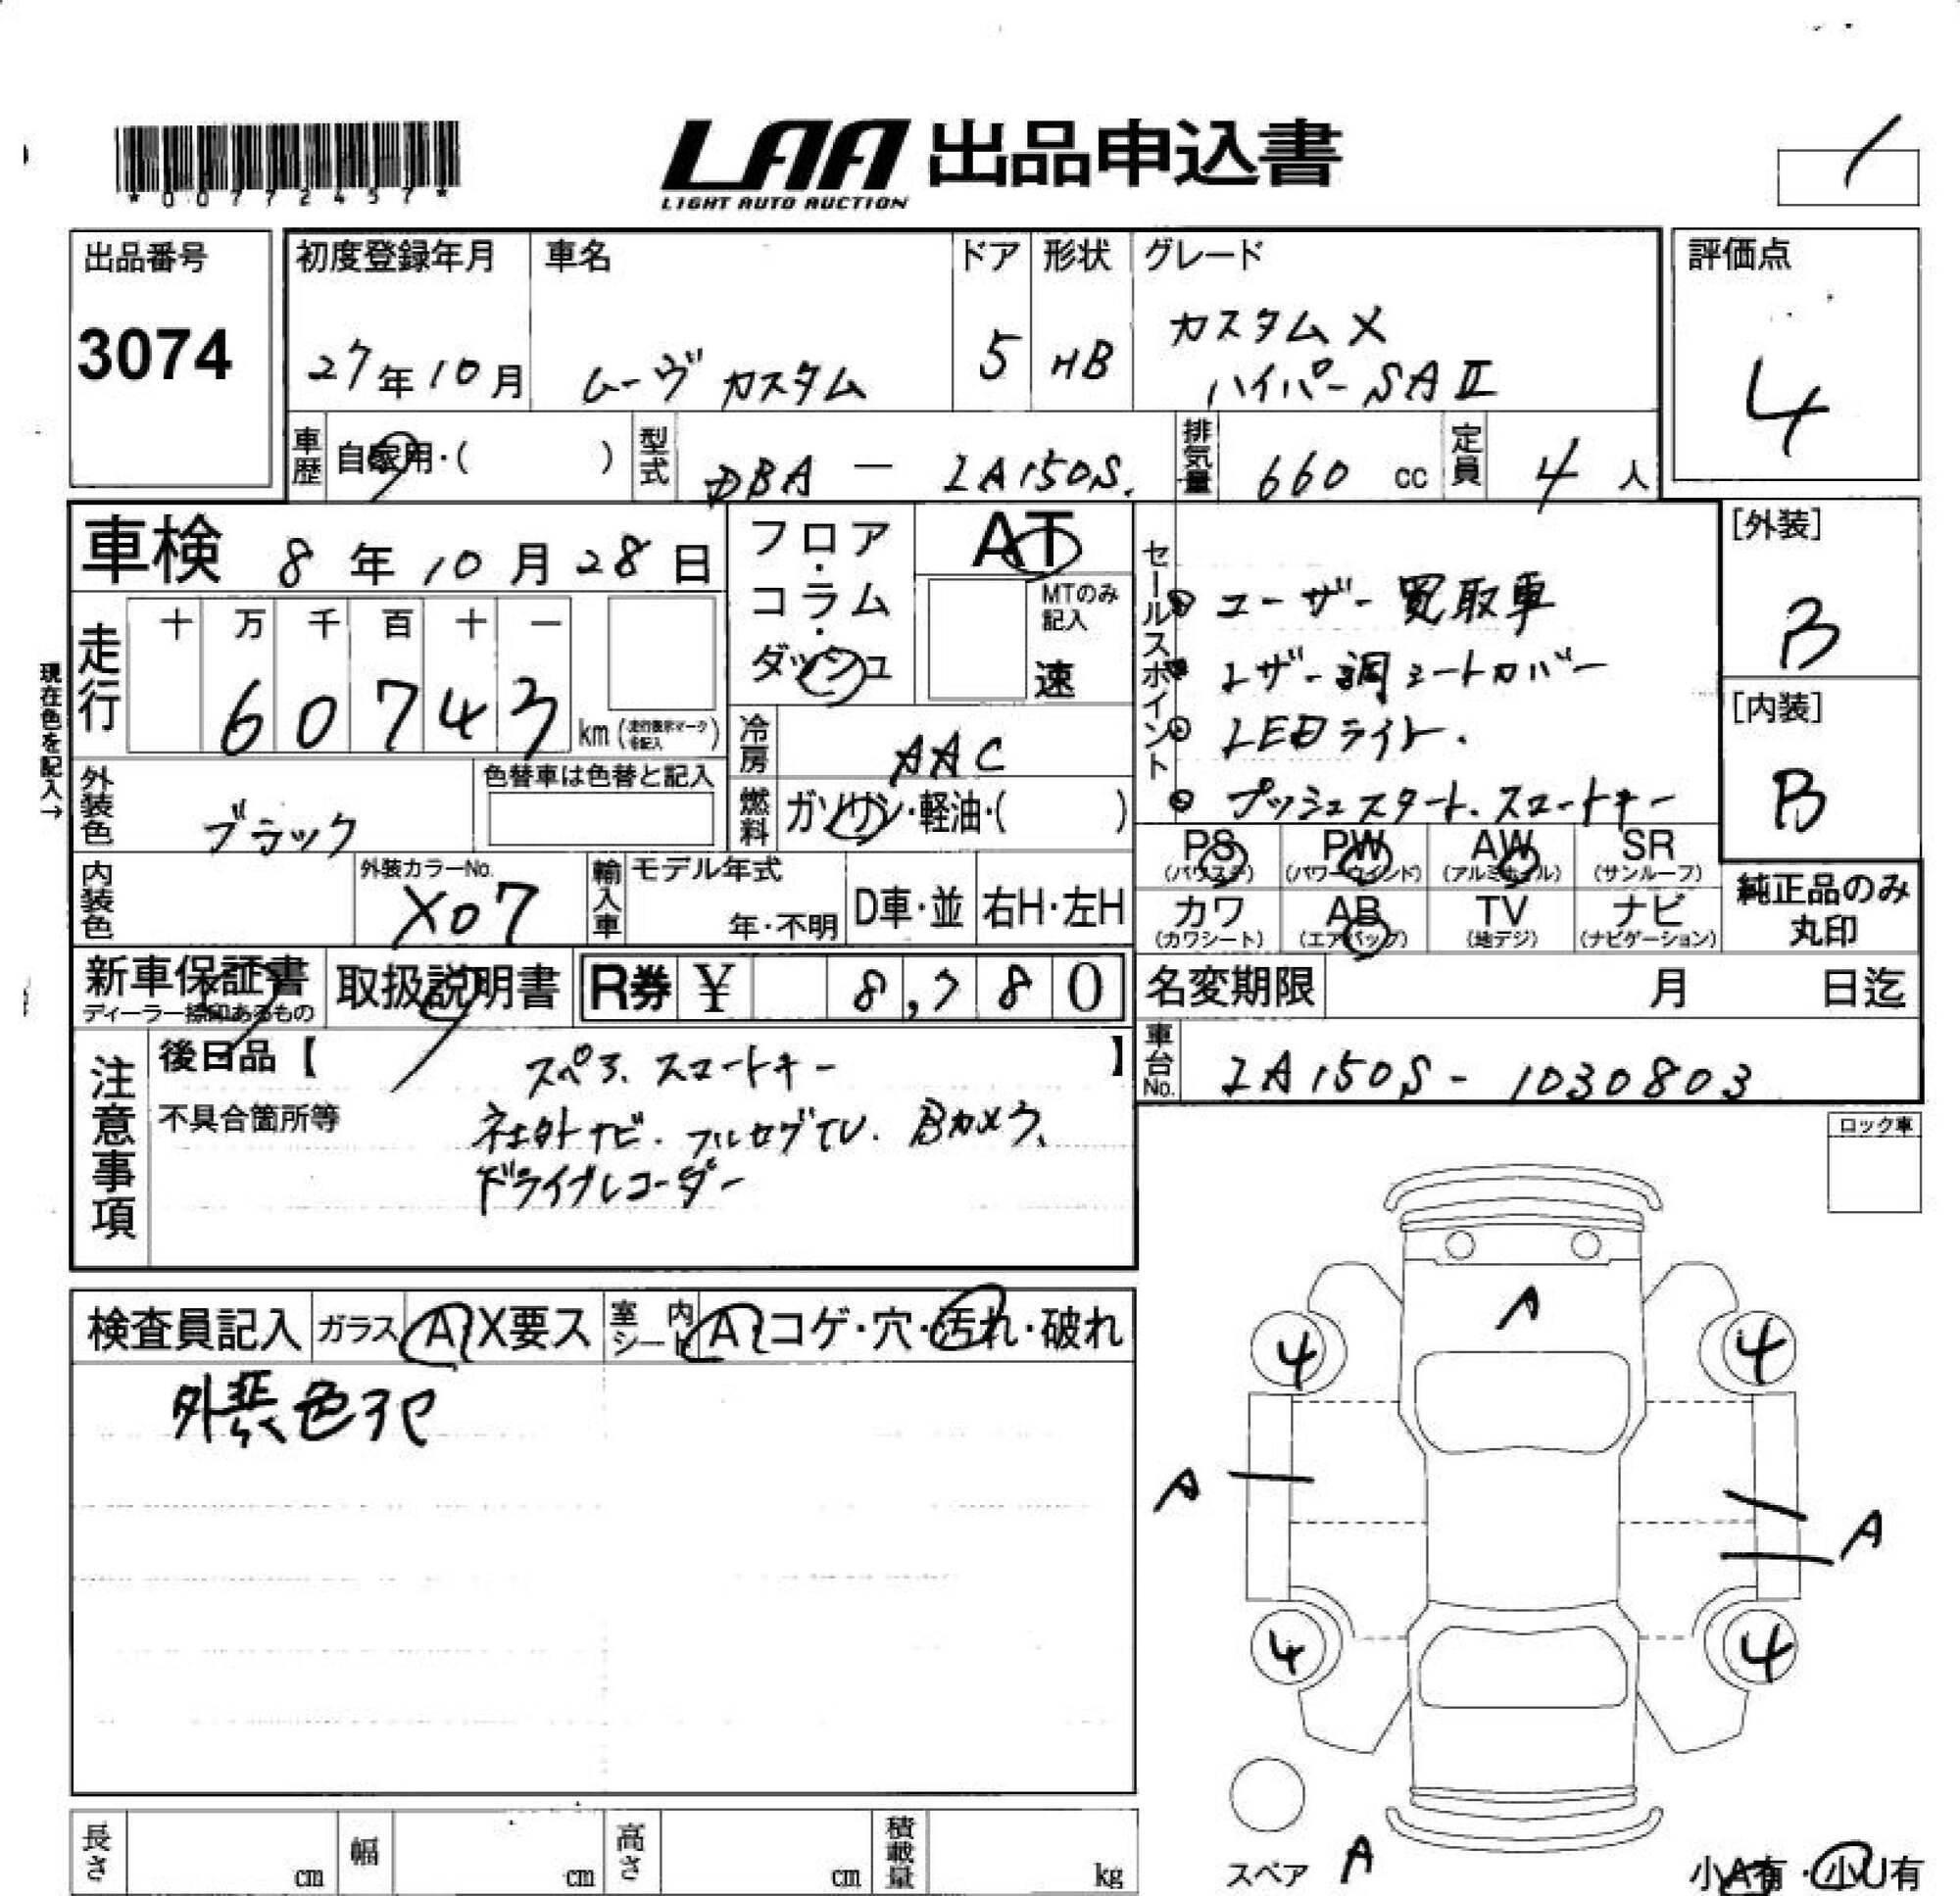 *00772457*
LAA 出品申込書
LIGHT AUTO AUCTION
出品番号
3074
初度登録年月
27年10月
車名
ムーヴ カスタム
ドア
5
形状
HB
グレード
カスタムX
ハイパーSAⅡ
評価点
4
車歴
自家用・( )
型式
DBA - LA150S
排気量
660 cc
定員
4 人
車検 8年10月28日
フロア・コラム・ダッシュ
AT
MTのみ記入
速
セールスポイント
ユーザー買取車
レザー調シートカバー
LEDライト.
プッシュスタート.スマートキー
[外装]
B
[内装]
B
現在色を記入→
走行
十 万 千 百 十 一
6 0 7 4 3
km
冷房
AAC
燃料
ガソリン・軽油・( )
外装色
ブラック
色替車は色替と記入
PS (パワステ)
PW (パワーウィンド)
AW (アルミホイル)
SR (サンルーフ)
カワ (カワシート)
AB (エアバック)
TV (地デジ)
ナビ (ナビゲーション)
純正品のみ丸印
内装色
外装カラーNo.
X07
輸入車
モデル年式
年・不明
D車・並
右H・左H
新車保証書
ディーラー捺印あるもの
取扱説明書
R券 ¥ 8,780
名変期限 月 日迄
車台No.
LA150S - 1030803
注意事項
後日品【 スペア、スマートキー 】
不具合箇所等
社外ナビ. フルセグTV. Bカメラ、
ドライブレコーダー
ロック車
検査員記入
ガラス
A X要ス
室内シート
A コゲ・穴・汚れ・破れ
A
4 4
A
A
4 4
スペア A
小A有・小U有
長さ cm
幅 cm
高さ cm
積載量 kg